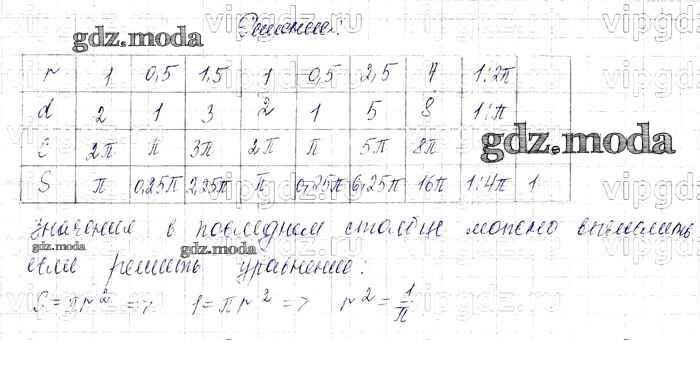 Решение:
gdz.moda
r 1 0,5 1,5 1 0,5 2,5 4 1:2π
d 2 1 3 2 1 5 8 1:π
C 2π π 3π 2π π 5π 8π
gdz.moda
S π 0,25π 2,25π π 0,25π 6,25π 16π 1:4π 1
значения в последнем столбце можно вычислить
gdz.moda gdz.moda
если решить уравнение:
S = πr² => 1 = πr² => r² = 1/π
vipgdz.ru